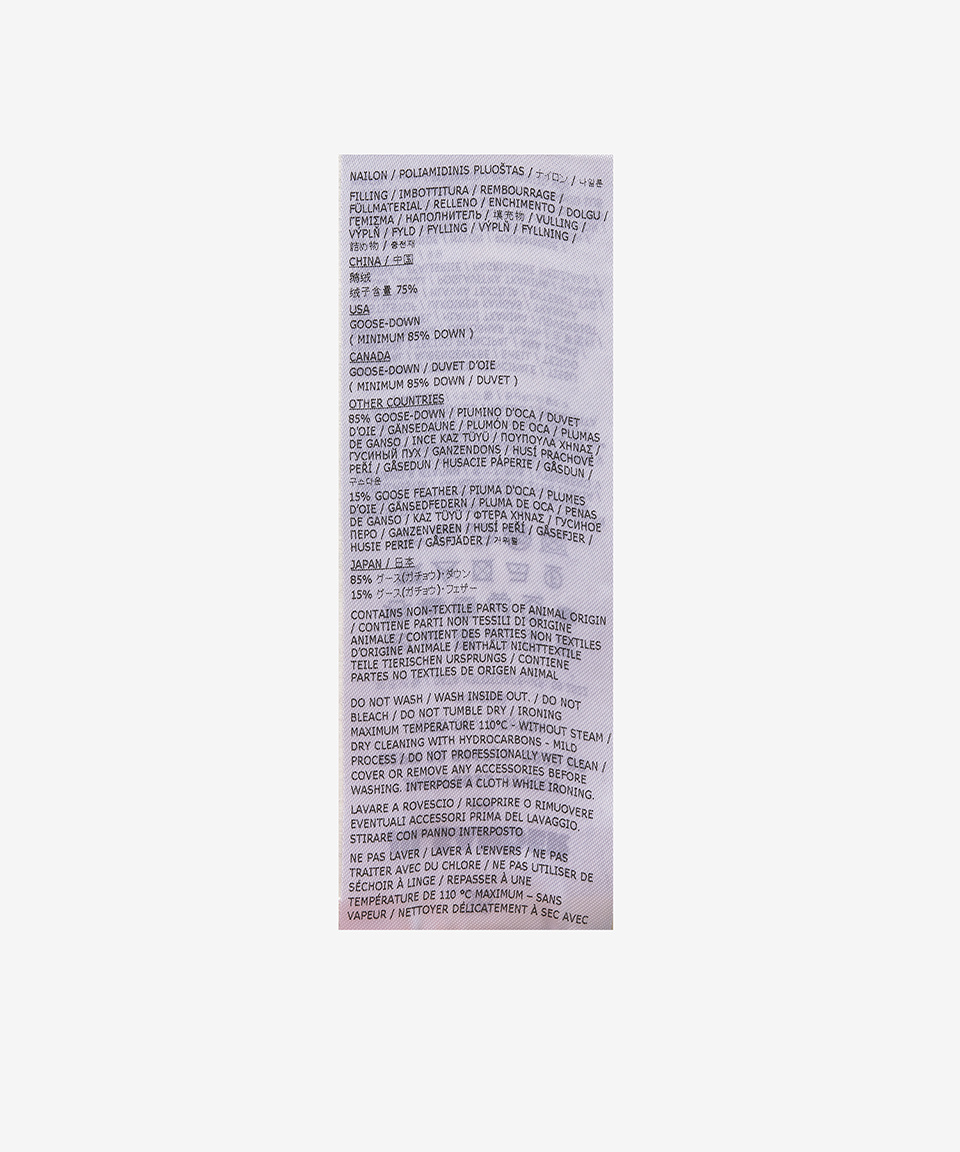 NAILON / POLIAMIDINIS PLUOŠTAS / ナイロン / 나일론
FILLING / IMBOTTITURA / REMBOURRAGE /
FÜLLMATERIAL / RELLENO / ENCHIMENTO / DOLGU /
ΓΕΜΙΣΜΑ / НАПОЛНИТЕЛЬ / 填充物 / VULLING /
VÝPLŇ / FYLD / FYLLING / VÝPLŇ / FYLLNING /
詰め物 / 충전재
CHINA / 中国
鹅绒
绒子含量 75%
USA
GOOSE-DOWN
( MINIMUM 85% DOWN )
CANADA
GOOSE-DOWN / DUVET D'OIE
( MINIMUM 85% DOWN / DUVET )
OTHER COUNTRIES
85% GOOSE-DOWN / PIUMINO D'OCA / DUVET
D'OIE / GÄNSEDAUNE / PLUMÓN DE OCA / PLUMAS
DE GANSO / INCE KAZ TÜYÜ / ΠΟΥΠΟΥΛΑ ΧΗΝΑΣ /
ГУСИНЫЙ ПУХ / GANZENDONS / HUSÍ PRACHOVÉ
PEŘÍ / GÅSEDUN / HUSACIE PÁPERIE / GÅSDUN /
구스다운
15% GOOSE FEATHER / PIUMA D'OCA / PLUMES
D'OIE / GÄNSEDFEDERN / PLUMA DE OCA / PENAS
DE GANSO / KAZ TÜYÜ / ΦΤΕΡΑ ΧΗΝΑΣ / ГУСИНОЕ
ПЕРО / GANZENVEREN / HUSÍ PEŘÍ / GÅSEFJER /
HUSIE PERIE / GÅSFJÄDER / 거위털
JAPAN / 日本
85% グース(ガチョウ)・ダウン
15% グース(ガチョウ)・フェザー
CONTAINS NON-TEXTILE PARTS OF ANIMAL ORIGIN
/ CONTIENE PARTI NON TESSILI DI ORIGINE
ANIMALE / CONTIENT DES PARTIES NON TEXTILES
D'ORIGINE ANIMALE / ENTHÄLT NICHTTEXTILE
TEILE TIERISCHEN URSPRUNGS / CONTIENE
PARTES NO TEXTILES DE ORIGEN ANIMAL
DO NOT WASH / WASH INSIDE OUT. / DO NOT
BLEACH / DO NOT TUMBLE DRY / IRONING
MAXIMUM TEMPERATURE 110°C - WITHOUT STEAM /
DRY CLEANING WITH HYDROCARBONS - MILD
PROCESS / DO NOT PROFESSIONALLY WET CLEAN /
COVER OR REMOVE ANY ACCESSORIES BEFORE
WASHING. INTERPOSE A CLOTH WHILE IRONING.
LAVARE A ROVESCIO / RICOPRIRE O RIMUOVERE
EVENTUALI ACCESSORI PRIMA DEL LAVAGGIO.
STIRARE CON PANNO INTERPOSTO
NE PAS LAVER / LAVER À L'ENVERS / NE PAS
TRAITER AVEC DU CHLORE / NE PAS UTILISER DE
SÉCHOIR À LINGE / REPASSER À UNE
TEMPÉRATURE DE 110 °C MAXIMUM – SANS
VAPEUR / NETTOYER DÉLICATEMENT À SEC AVEC